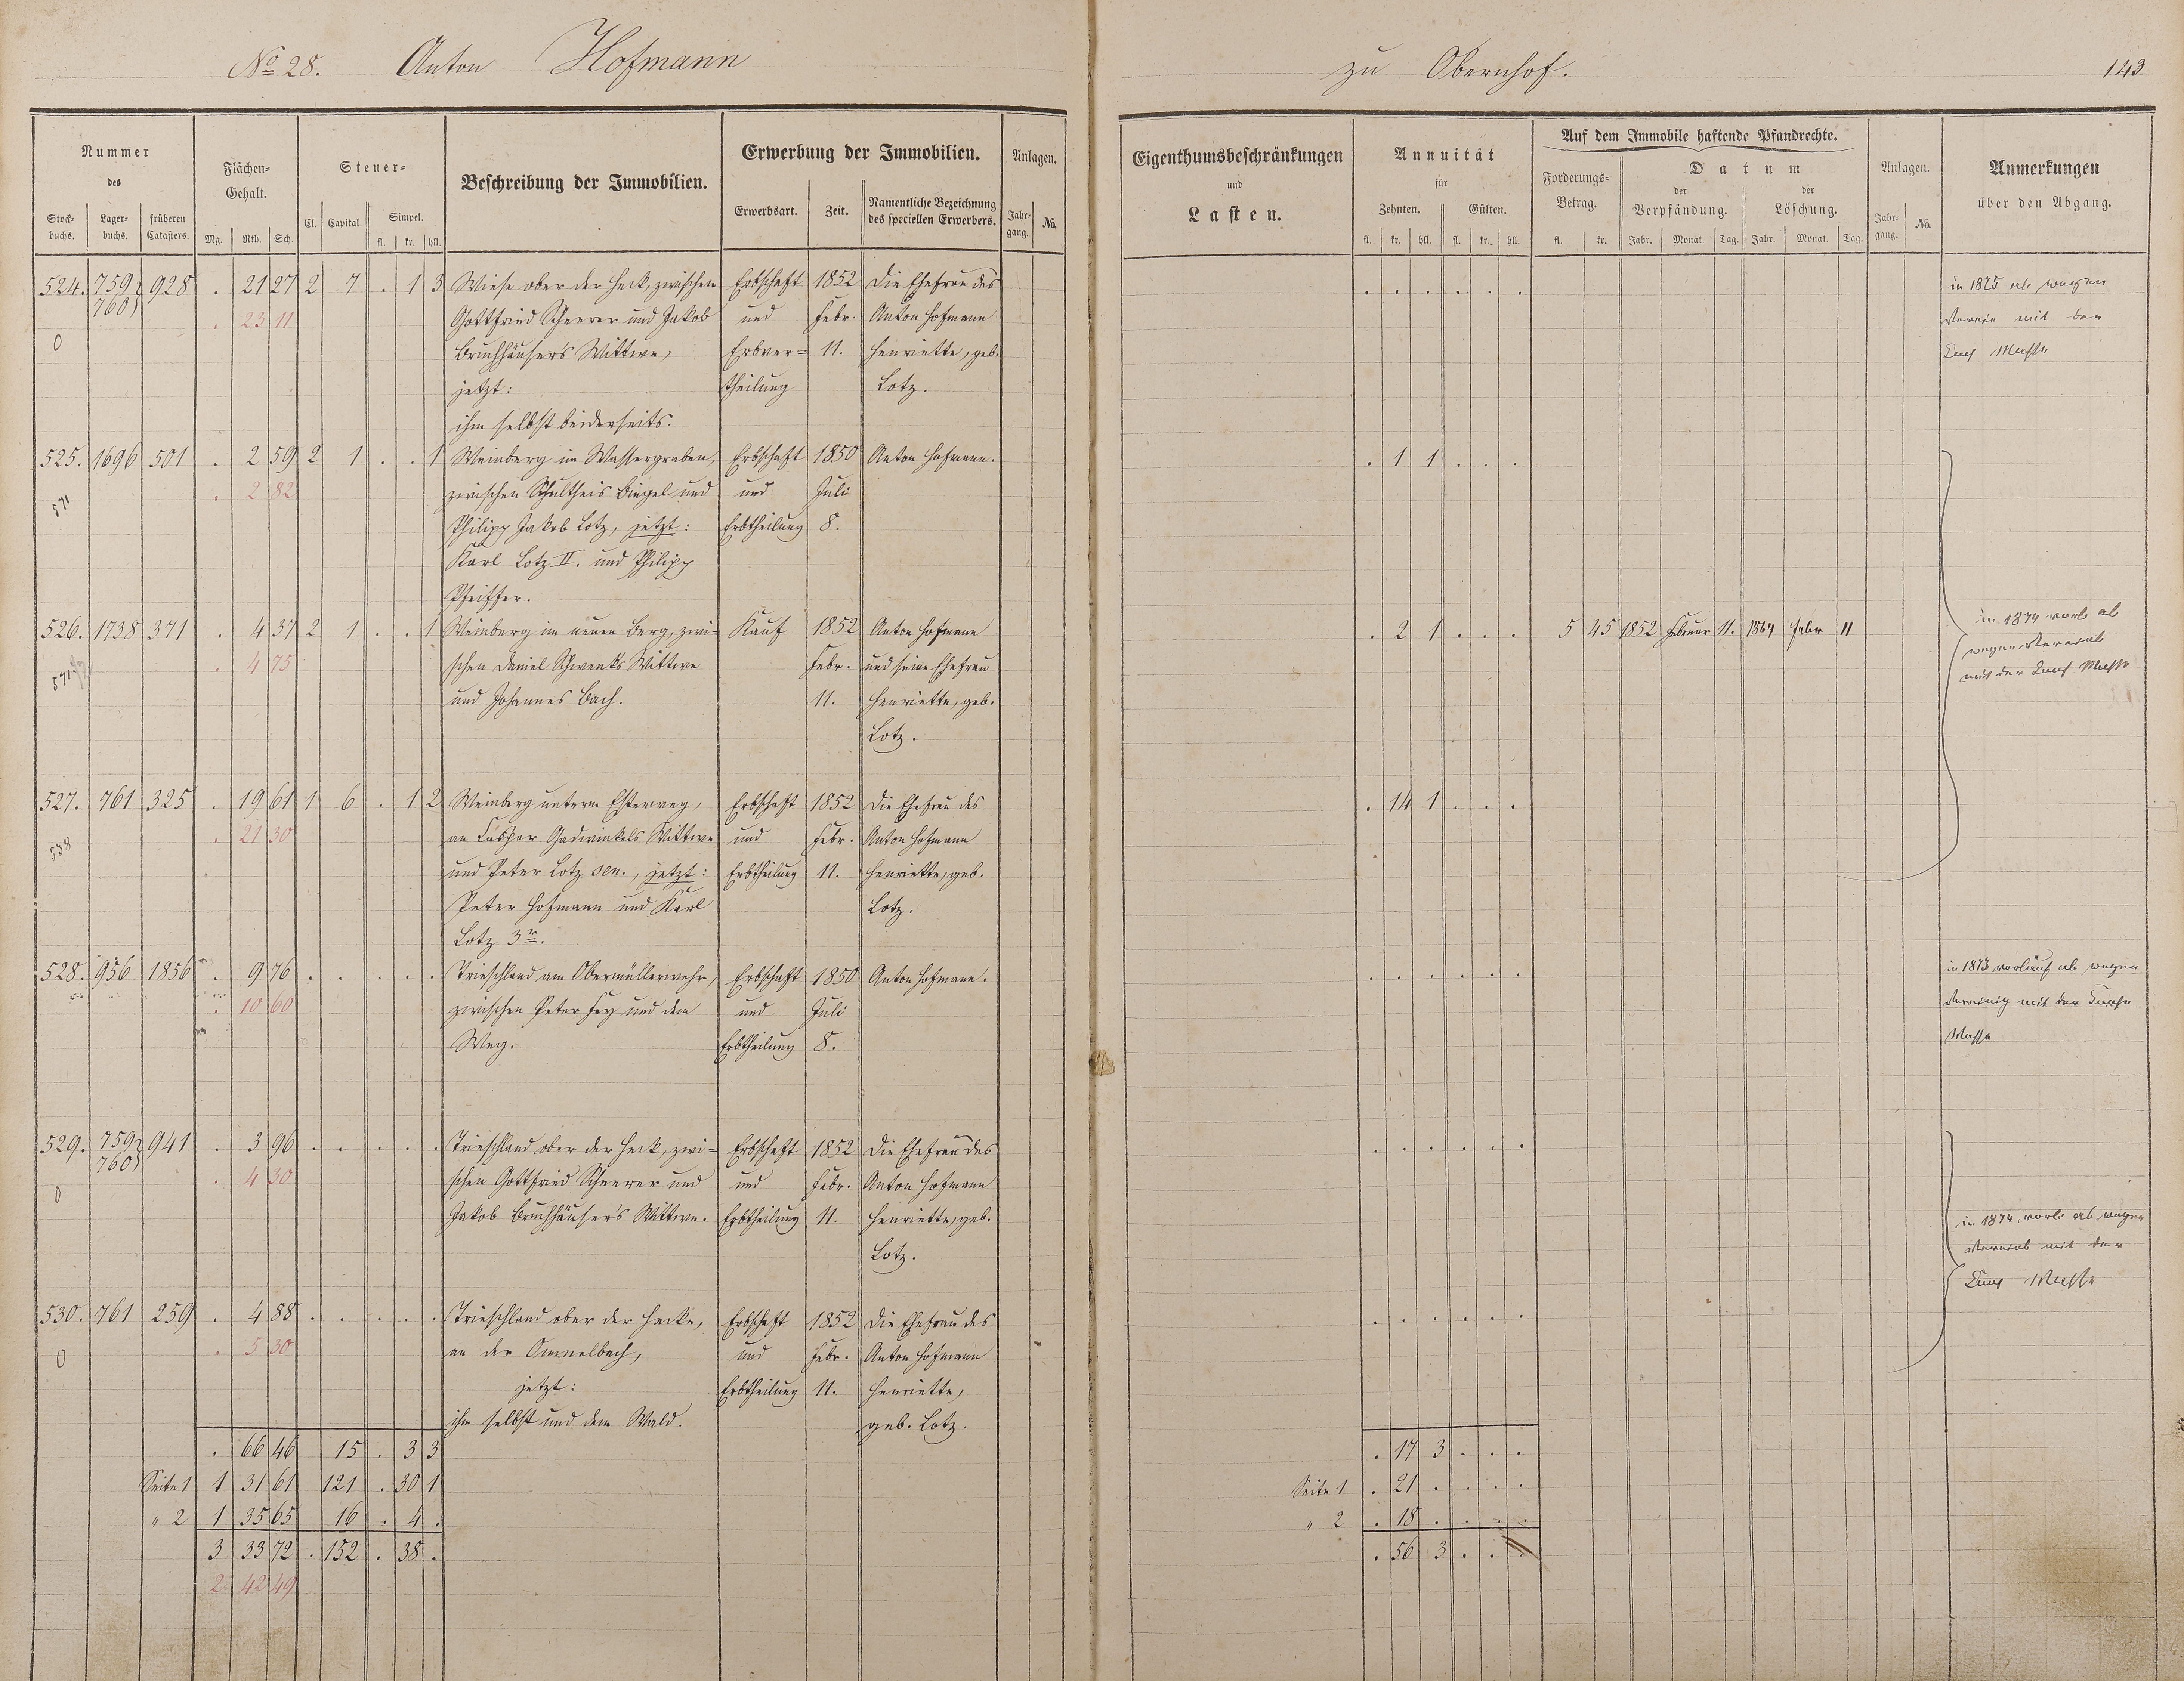 No 28. Anton Hofmann zu Obernhof. 143
Nummer des
Stock-buchs. Lager-buchs. früheren Catasters.
Flächen-Gehalt.
Mg. Rth. Sch.
Steuer-
Cl. Capital. Simpel.
fl. kr. hll.
Beschreibung der Immobilien.
Erwerbung der Immobilien.
Erwerbsart. Zeit. Namentliche Bezeichnung des speciellen Erwerbers.
Anlagen.
Jahr-gang. No.
Eigenthumsbeschränkungen
und
Lasten.
Annuität
für
Zehnten. Gülten.
fl. kr. hll. fl. kr. hll.
Auf dem Immobile haftende Pfandrechte.
Forderungs-Betrag.
fl. kr.
Datum
der Verpfändung. der Löschung.
Jahr. Monat. Tag. Jahr. Monat. Tag.
Anlagen.
Jahr-gang. No.
Anmerkungen
über den Abgang.
524. 759 928 . 21 27 2 7 . 1 3 Wiese ober der Heck, zwischen Erbschaft 1852 Die Ehefrau des . . . . . . in 1875 ab wegen
760 . 23 11 Gottfried Scheerer und Jakob und Febr. Anton Hofmann mit der
0 Bruchhäusers Wittwe, Erbver- 11. Henriette, geb. Masse
jetzt: theilung Lotz.
ihm selbst beiderseits.
525. 1696 501 . 2 59 2 1 . . 1 Weinberg im Wassergraben, Erbschaft 1850 Anton Hofmann. . 1 1 . . .
571 . 2 82 zwischen Schultheis Bingel und und Juli
Philipp Jakob Lotz, jetzt: Erbtheilung 8.
Karl Lotz II. und Philipp
Pfeiffer.
526. 1738 371 . 4 37 2 1 . . 1 Weinberg im neuen Berg, zwi- Kauf 1852 Anton Hofmann . 2 1 . . . 5 45 1852 Februar 11. 1864 Febr 11 in 1874 vorl. ab
571 . 4 75 schen Daniel Schwenk's Wittwe Febr. und seine Ehefrau wegen
und Johannes Bach. 11. Henriette, geb. mit der Masse
Lotz.
527. 761 325 . 19 61 1 6 . 1 2 Weinberg unterm Esterweg, Erbschaft 1852 Die Ehefrau des . 14 1 . . .
538 . 21 30 an Caspar Wittwe und Febr. Anton Hofmann
und Peter Lotz sen., jetzt: Erbtheilung 11. Henriette, geb.
Peter Hofmann und Karl Lotz.
Lotz 3r.
528. 956 1856 . 9 76 . . . . . Trieschland am Obermüllerwehr, Erbschaft 1850 Anton Hofmann. . . . . . . in 1873 ab wegen
. 10 60 zwischen Peter Fey und dem und Juli mit der
Weg. Erbtheilung 8. Masse
529. 759 941 . 3 96 . . . . . Trieschland ober der Heck, zwi- Erbschaft 1852 Die Ehefrau des . . . . . .
760 . 4 30 schen Gottfried Scheerer und und Febr. Anton Hofmann
0 Jakob Bruchhäusers Wittwe. Erbtheilung 11. Henriette, geb. in 1874 vorl. ab wegen
Lotz. mit der
Masse
530. 761 259 . 4 88 . . . . . Trieschland ober der Hecke, Erbschaft 1852 Die Ehefrau des . . . . . .
0 . 5 30 an der und Febr. Anton Hofmann
jetzt: Erbtheilung 11. Henriette,
ihm selbst und dem Wald. geb. Lotz.
. 66 46 15 . 3 3 . 17 3 . . .
Seite 1 1 31 61 121 . 30 1 Seite 1 . 21 . . . .
" 2 1 35 65 16 . 4 . " 2 . 18 . . . .
3 33 72 . 152 . 38 . . 56 3 . . .
2 42 49